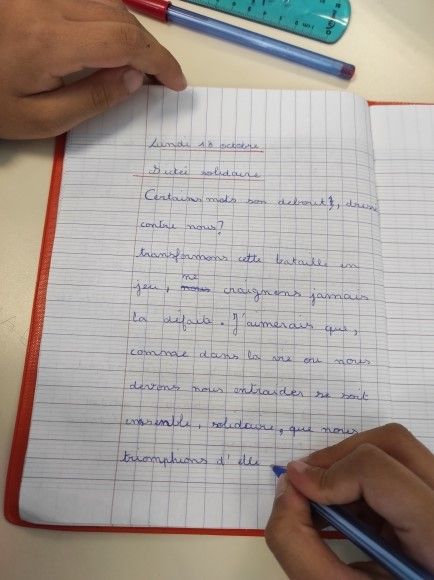 Lundi 18 octobre
Dictée solidaire
Certains mots son debout, dressé
contre nous?
transformons cette bataille en
jeu, ne craignons jamais
la défaite. J'aimerais que,
comme dans la vie ou nous
devons nous entraider se soit
ensemble, solidaire, que nous
triomphions d'elle